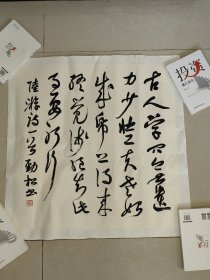 古人学问无遗
力少壮工夫老始
成纸上得来
终觉浅绝知此
事要躬行
陸游诗一首劲松书
投资